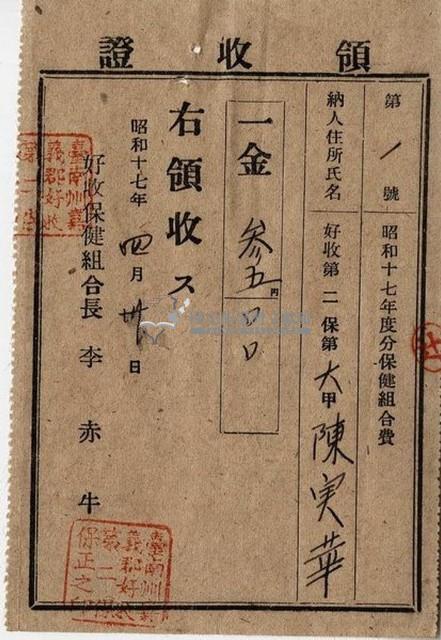 領收證
第 1 號 昭和十七年度分保健組合費
納人住所氏名 好收第二保第 甲 陳実華
一金 参五円〇〇
右領收ス
昭和十七年四月 日
好收保健組合長 李赤牛
臺南州嘉
義郡好收
臺南州嘉
義郡好收
第二保
保正之印